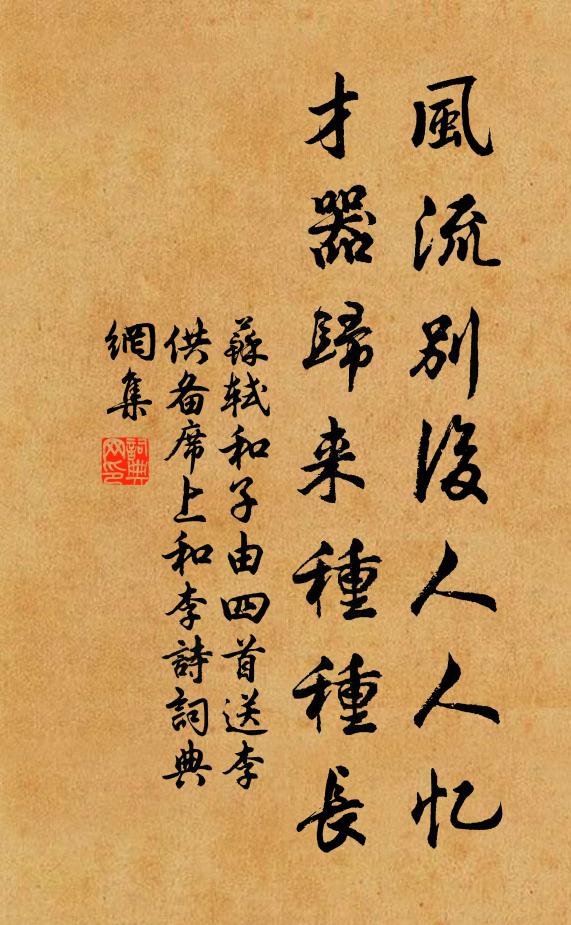 風流別後人人忆
才器歸来種種長
蘇軾和子由四首送李
供备席上和李詩詞典
網集
詞典
网印